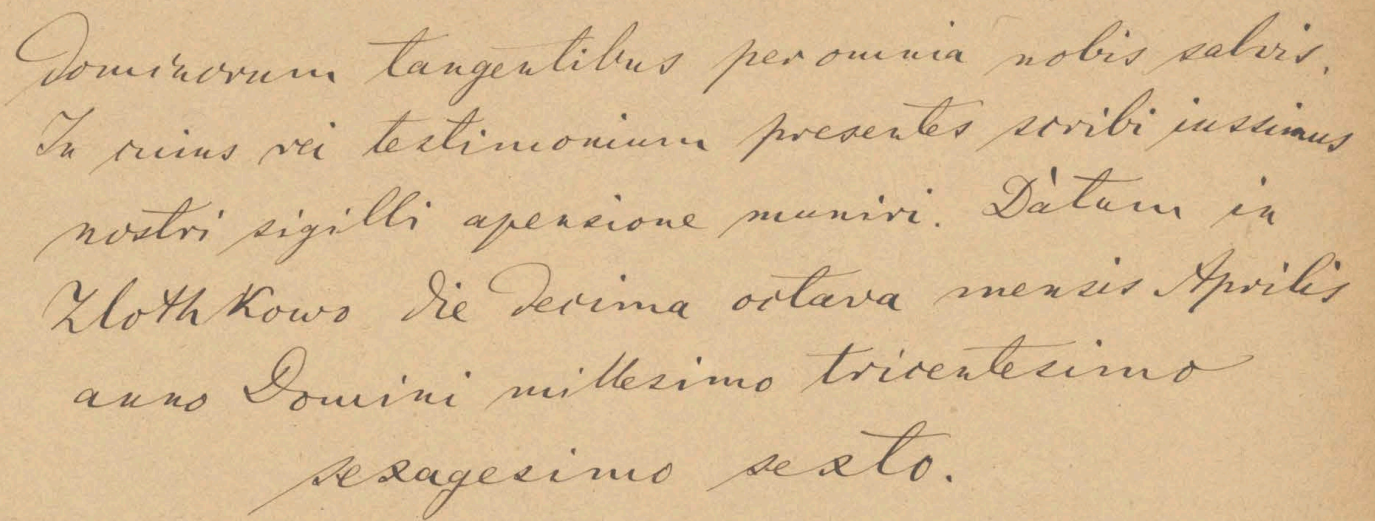 dominorum tangentibus per omnia nobis salvis.
In cuius rei testimonium presentes scribi iussimus
nostri sigilli apensione muniri. Datum in
Zlothkowo die decima octava mensis Aprilis
anno Domini millesimo tricentesimo
sexagesimo sexto.